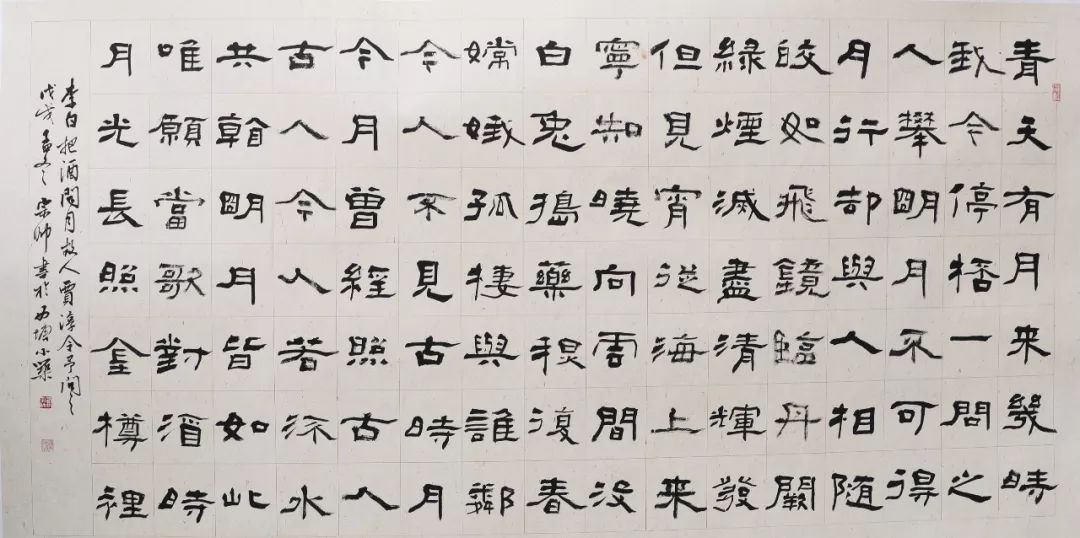 青天有月来幾時
我今停桮一問之
人攀明月不可得
月行却與人相随
皎如飛鏡臨丹闕
緑煙滅盡清輝發
但見宵從海上来
寧知曉向雲間没
白兔搗藥秋復春
嫦娥孤棲與誰鄰
今人不見古時月
今月曾經照古人
古人今人若流水
共看明月皆如此
唯願當歌對酒時
月光長照金樽裡
李白把酒問月故人賈淳令予問之
戊戌孟冬之宗帥書於小築